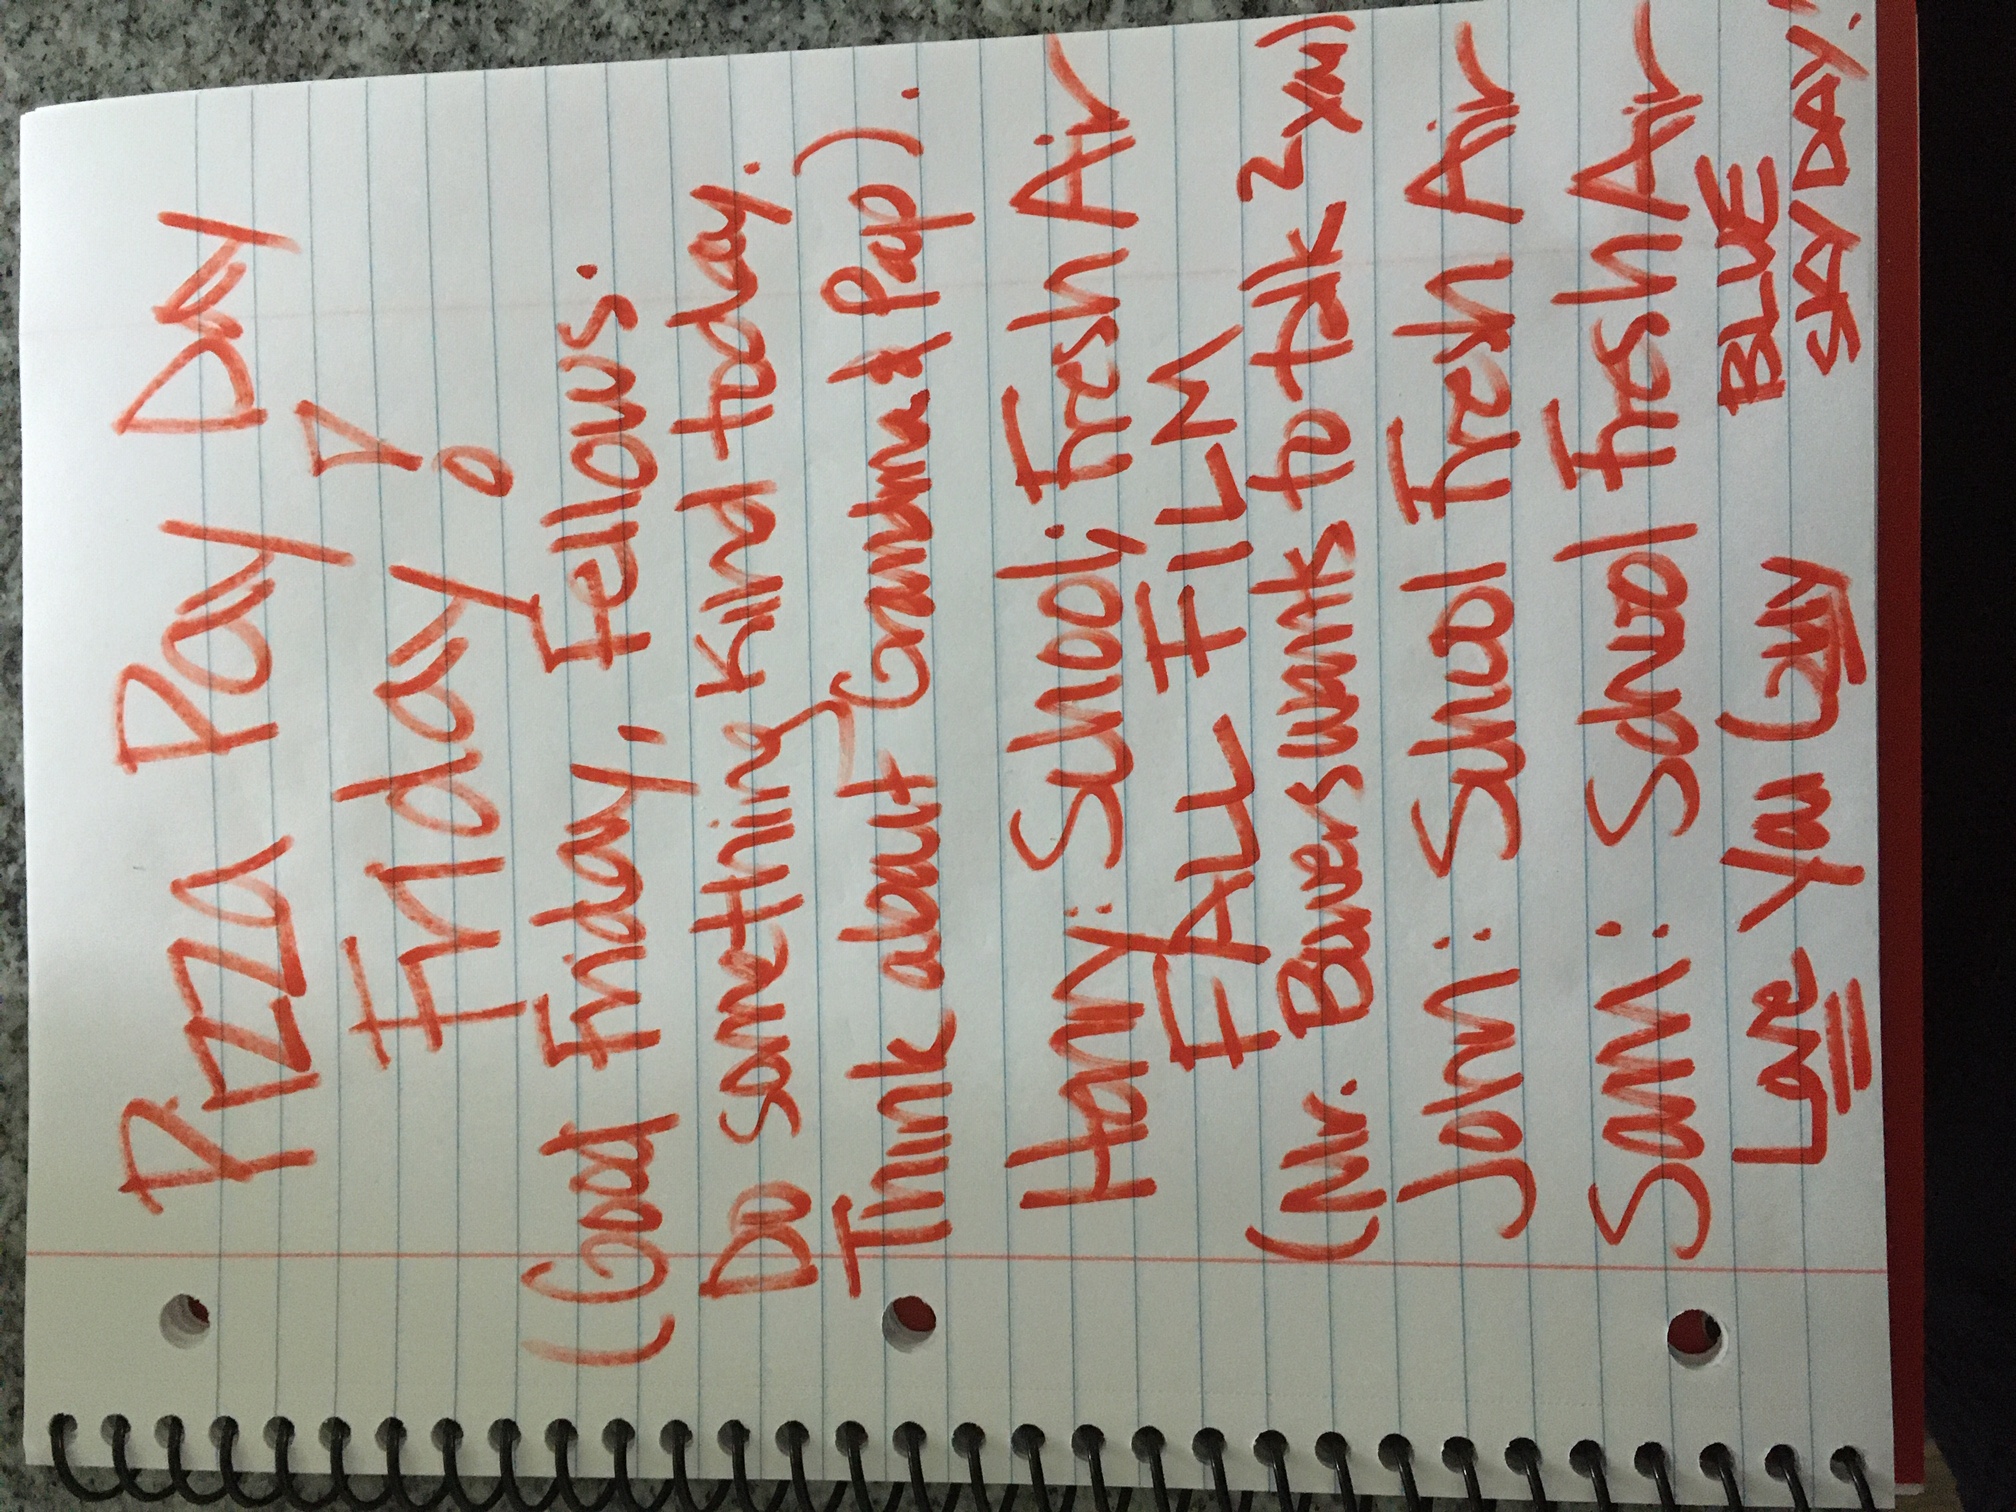 Pizza Pay Day
Friday!
(Good Friday, Fellows.
Do something kind today.
Think about Grandma & Pap).
Harry: School; Fresh Air
FALL FILM
(Mr. Bowers wants to talk 2 you)
John: School Fresh Air
Sam: School Fresh Air
BLUE
SKY DAY!
Love You Guy